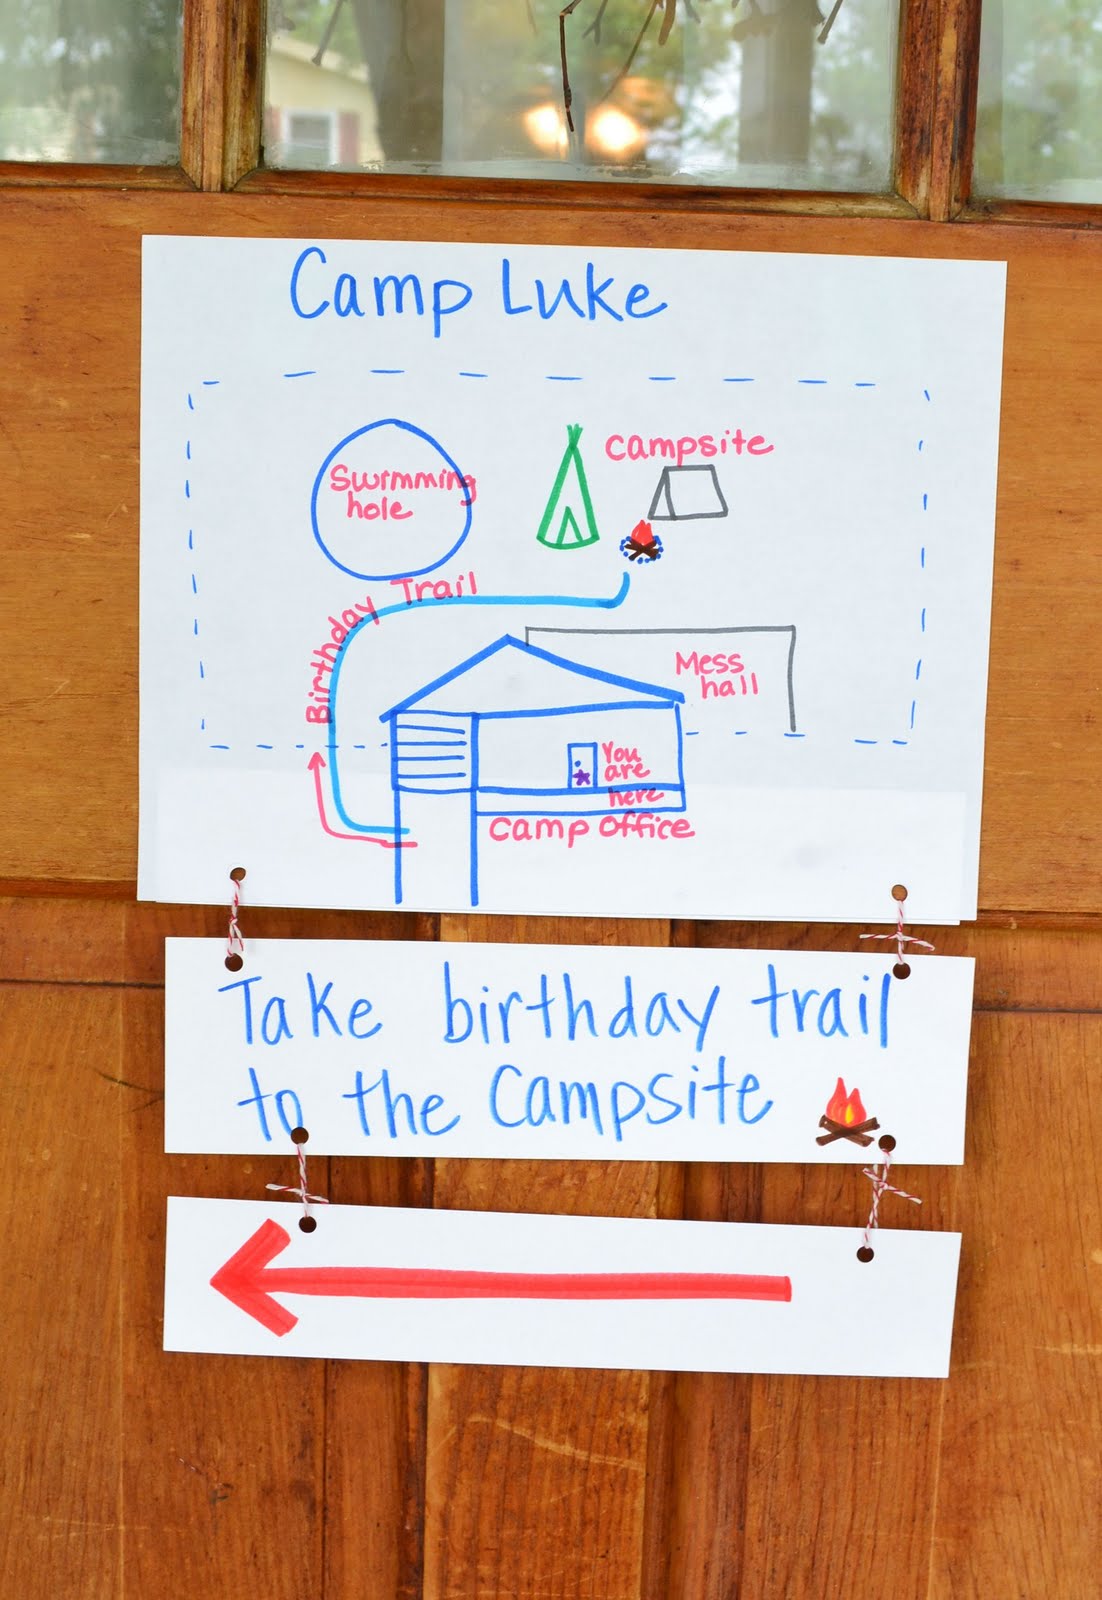 Camp Luke
Swimming
hole
Campsite
Birthday Trail
Mess
hall
You
are
here
Camp Office
Take birthday trail
to the Campsite